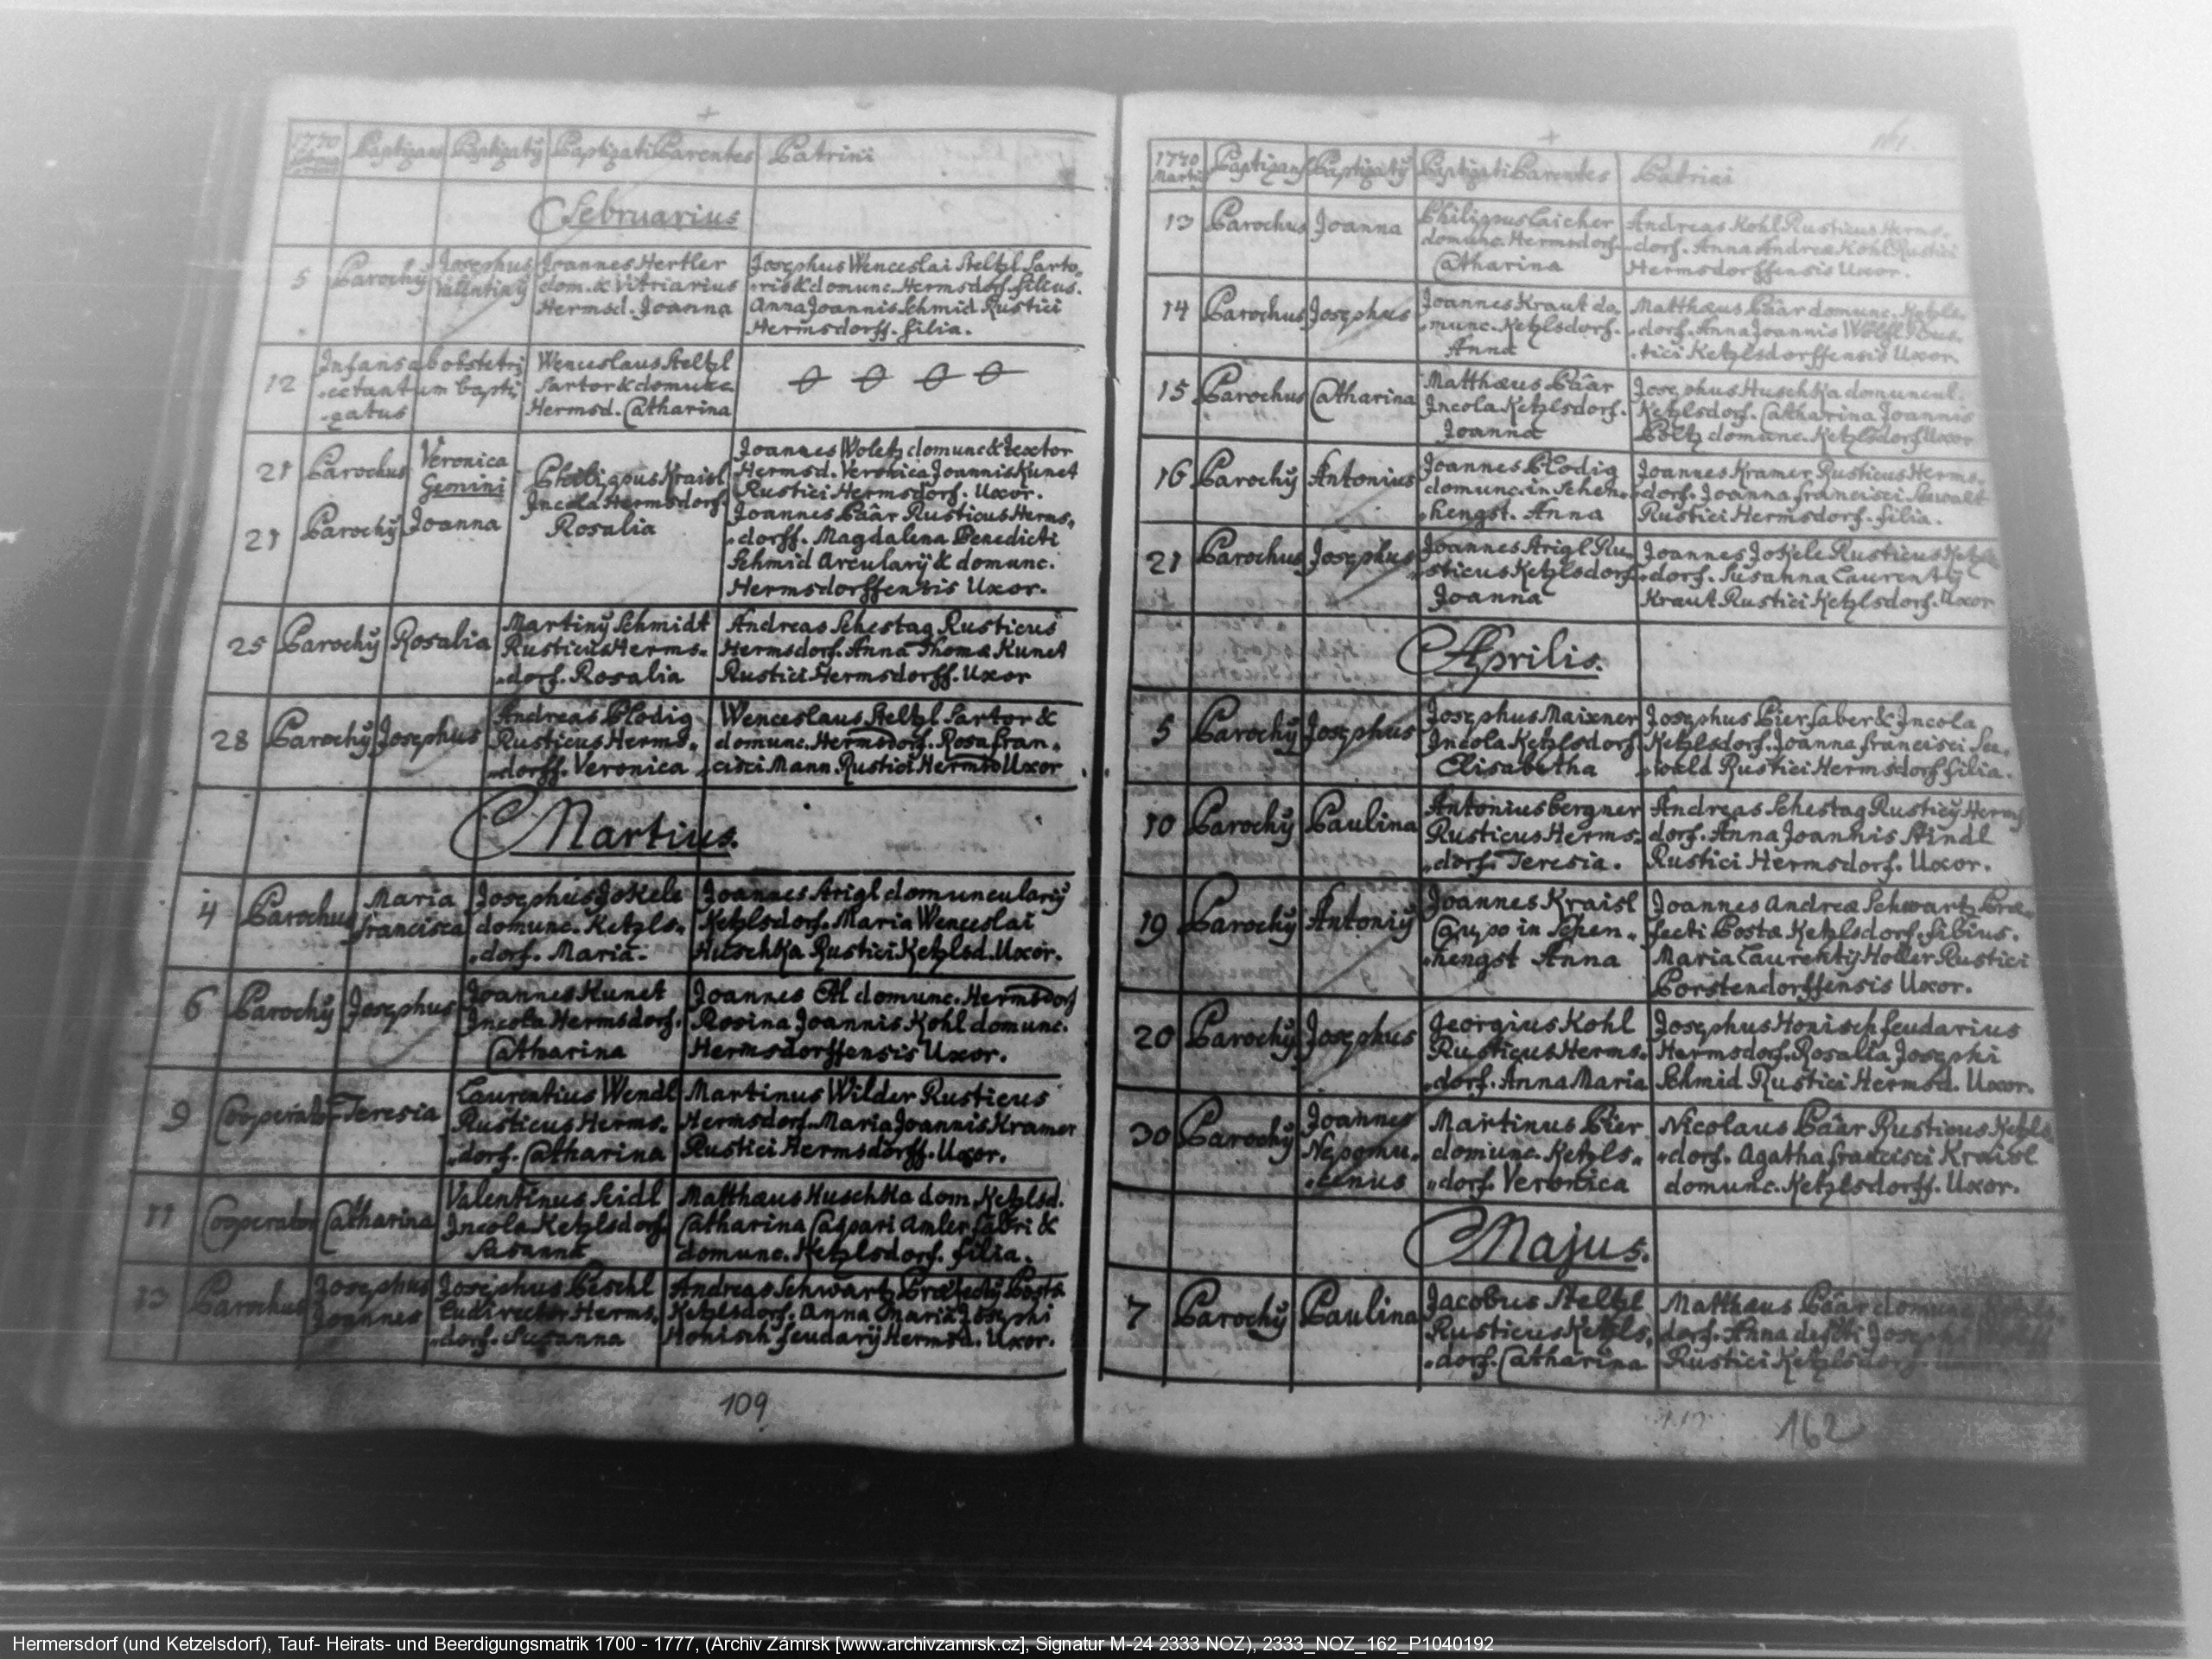 1770 Baptizans Baptizatÿ Baptizati Parentes Patrini
Februarius
5 Parochÿ Josephus Valentinÿ
Joannes Hertler
dom. & Vitriarius
Hermsd. Joanna
Josephus Wenceslai Steltzl Sarto„
„ris & domunc. Hermsdorf. filius.
Anna Joannis Schmid Rustici
Hermsdorff. filia.
12 Infans ab obstetri
„ce tantum bapti
„zatus
Wenceslaus Steltzl
Sartor & domunc
Hermsd. Catharina
21 Parochus Veronica
Gemini
21 Parochÿ Joanna
Philippus Kraisl
Incola Hermsdorf
Rosalia
Joannes Woletz domunc & Textor
Hermsd. Veronica Joannis Kunet
Rustici Hermsdorf. Uxor.
Joannes Bââr Rusticus Herms„
„dorff. Magdalena Benedicti
Schmid Arcularÿ & domunc.
Hermsdorffensis Uxor.
25 Parochÿ Rosalia
Martinÿ Schmidt
Rusticus Herms„
„dorf. Rosalia
Andreas Schestag Rusticus
Hermsdorf. Anna Thomæ Kunet
Rustici Hermsdorff. Uxor
28 Parochÿ Josephus
Andreas Blodig
Rusticus Herms„
„dorff. Veronica
Wenceslaus Steltzl Sartor &
domunc. Hermsdorf. Rosa Fran„
„cisci Mann Rustici Hermsd Uxor
Martius.
4 Parochus Maria
Francisca
Josephus Jokele
domunc. Ketzls„
„dorf. Maria.
Joannes Strigl domuncularÿ
Ketzlsdorf. Maria Wenceslai
Huschka Rustici Ketzlsd. Uxor.
6 Parochÿ Josephus
Joannes Kunet
Incola Hermsdorf.
Catharina
Joannes Etl domunc. Hermsdorf
Rosina Joannis Kohl domunc.
Hermsdorffensis Uxor.
9 Cooperator Teresia
Laurentius Wendl
Rusticus Herms„
„dorf. Catharina
Martinus Wilder Rusticus
Hermsdorf. Maria Joannis Kramer
Rustici Hermsdorff. Uxor.
11 Cooperator Catharina
Valentinus Seidl
Incola Ketzlsdorf
Susanna
Matthæus Huschka dom. Ketzlsd.
Catharina Caspari Amler fabri &
domunc. Ketzlsdorf. filia.
13 Parochus Josephus
Joannes
Josephus Peschl
Ludirector Herms„
„dorf. Susanna
Andreas Schwartz Præfectÿ Postæ
Ketzlsdorf. Anna Maria Josephi
Honisch feudarÿ Hermsd. Uxor.
109
1770
Martÿ Baptizans Baptizatÿ Baptizati Parentes Patrini
13 Parochus Joanna
Philippus Laicher
domunc. Hermsdorf
Catharina
Andreas Kohl Rusticus Herms„
„dorf. Anna Andreæ Kohl Rustici
Hermsdorffensis Uxor.
14 Parochus Josephus
Joannes Kraut do„
„munc. Ketzlsdorf.
Anna
Matthæus Bââr domunc. Ketzls„
„dorf. Anna Joannis Wölfl Rus„
„tici Ketzlsdorffensis Uxor.
15 Parochus Catharina
Matthæus Bââr
Incola Ketzlsdorf.
Joanna
Josephus Huschka domuncul.
Ketzlsdorf. Catharina Joannis
Poltz domunc. Ketzlsdorf Uxor
16 Parochÿ Antonius
Joannes Blodig
domunc. in Schen„
„hengst. Anna
Joannes Kramer Rusticus Herms„
„dorf. Joanna Francisci Sewalt
Rustici Hermsdorf. filia.
21 Parochus Josephus
Joannes Strigl Ru„
„sticus Ketzlsdorf.
Joanna
Joannes Jokele Rusticus Ketzls
„dorf. Susanna Laurentÿ
Kraut Rustici Ketzlsdorf. Uxor
Aprilis.
5 Parochÿ Josephus
Josephus Maixner
Incola Ketzlsdorf
Elisabetha
Josephus Bier faber & Incola
Ketzlsdorf. Joanna Francisci See„
„wald Rustici Hermsdorf filia.
10 Parochÿ Paulina
Antonius Bergner
Rusticus Herms„
„dorf. Teresia.
Andreas Schestag Rusticÿ Herms
dorf. Anna Joannis Stindl
Rustici Hermsdorf. Uxor.
19 Parochÿ Antoniÿ
Joannes Kraisl
in Schen„
„hengst Anna
Joannes Andreæ Schwartz Præ„
fecti Postæ Ketzlsdorf. filius.
Maria Laurentÿ Holler Rustici
Porstendorffensis Uxor.
20 Parochÿ Josephus
Georgius Kohl
Rusticus Herms„
„dorf. Anna Maria
Josephus Honisch feudarius
Hermsdorf. Rosalia Josephi
Schmid Rustici Hermsd. Uxor.
30 Parochÿ Joannes
Nepomu„
„cenus
Martinus Bier
domunc. Ketzls„
„dorf. Veronica
Nicolaus Bââr Rusticus Ketzls
„dorf. Agatha Francisci Kraisl
domunc. Ketzlsdorff. Uxor.
Majus.
7 Parochÿ Paulina
Jacobus Steltzl
Rusticus Ketzls„
„dorf. Catharina
Matthæus Bââr domunc
dorf. Anna defcti Josephi
Rustici Ketzlsdorf.
162
Hermersdorf (und Ketzelsdorf), Tauf- Heirats- und Beerdigungsmatrik 1700 - 1777, (Archiv Zámrsk [www.archivzamrsk.cz], Signatur M-24 2333 NOZ), 2333_NOZ_162_P1040192